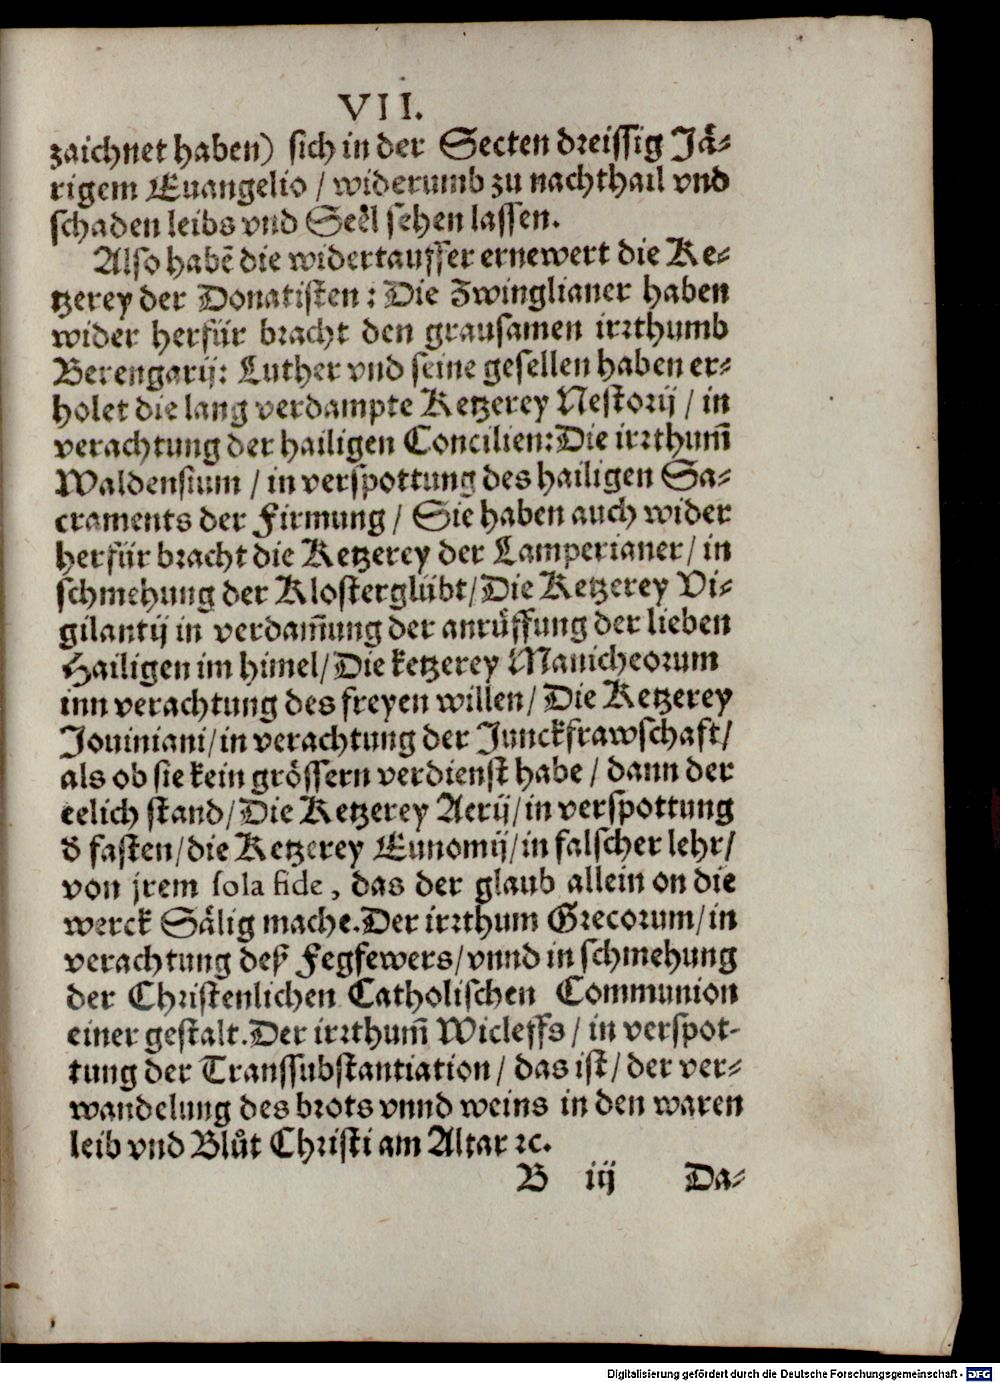 VII.
zaichnet haben) sich in der Secten dreissig Jä-
rigem Euangelio / widerumb zu nachthail vnd
schaden leibs vnd Seel sehen lassen.
Also habē die widertauffer ernewert die Ke-
tzerey der Donatisten: Die Zwinglianer haben
wider herfür bracht den grausamen irrthumb
Berengarij: Luther vnd seine gesellen haben er-
holet die lang verdampte Ketzerey Nestorij / in
verachtung der hailigen Concilien: Die irrthum̄
Waldensium / in verspottung des hailigen Sa-
craments der Firmung / Sie haben auch wider
herfür bracht die Ketzerey der Lamperianer / in
schmehung der Klosterglübt / Die Ketzerey Vi-
gilantij in verdam̄ung der anrůffung der lieben
Hailigen im himel / Die ketzerey Manicheorum
inn verachtung des freyen willen / Die Ketzerey
Jouiniani / in verachtung der Junckfrawschaft /
als ob sie kein grössern verdienst habe / dann der
eelich stand / Die Ketzerey Aerij / in verspottung
d̄ fasten / die Ketzerey Eunomij / in falscher lehr /
von jrem sola fide, das der glaub allein on die
werck Sälig mache. Der irrthum Grecorum / in
verachtung deß Fegfewers / vnnd in schmehung
der Christenlichen Catholischen Communion
einer gestalt. Der irrthum̄ Wicleffs / in verspot-
tung der Transsubstantiation / das ist / der ver-
wandelung des brots vnnd weins in den waren
leib vnd Blůt Christi am Altar ꝛc.
B iij Da-
Digitalisierung gefördert durch die Deutsche Forschungsgemeinschaft - DFG